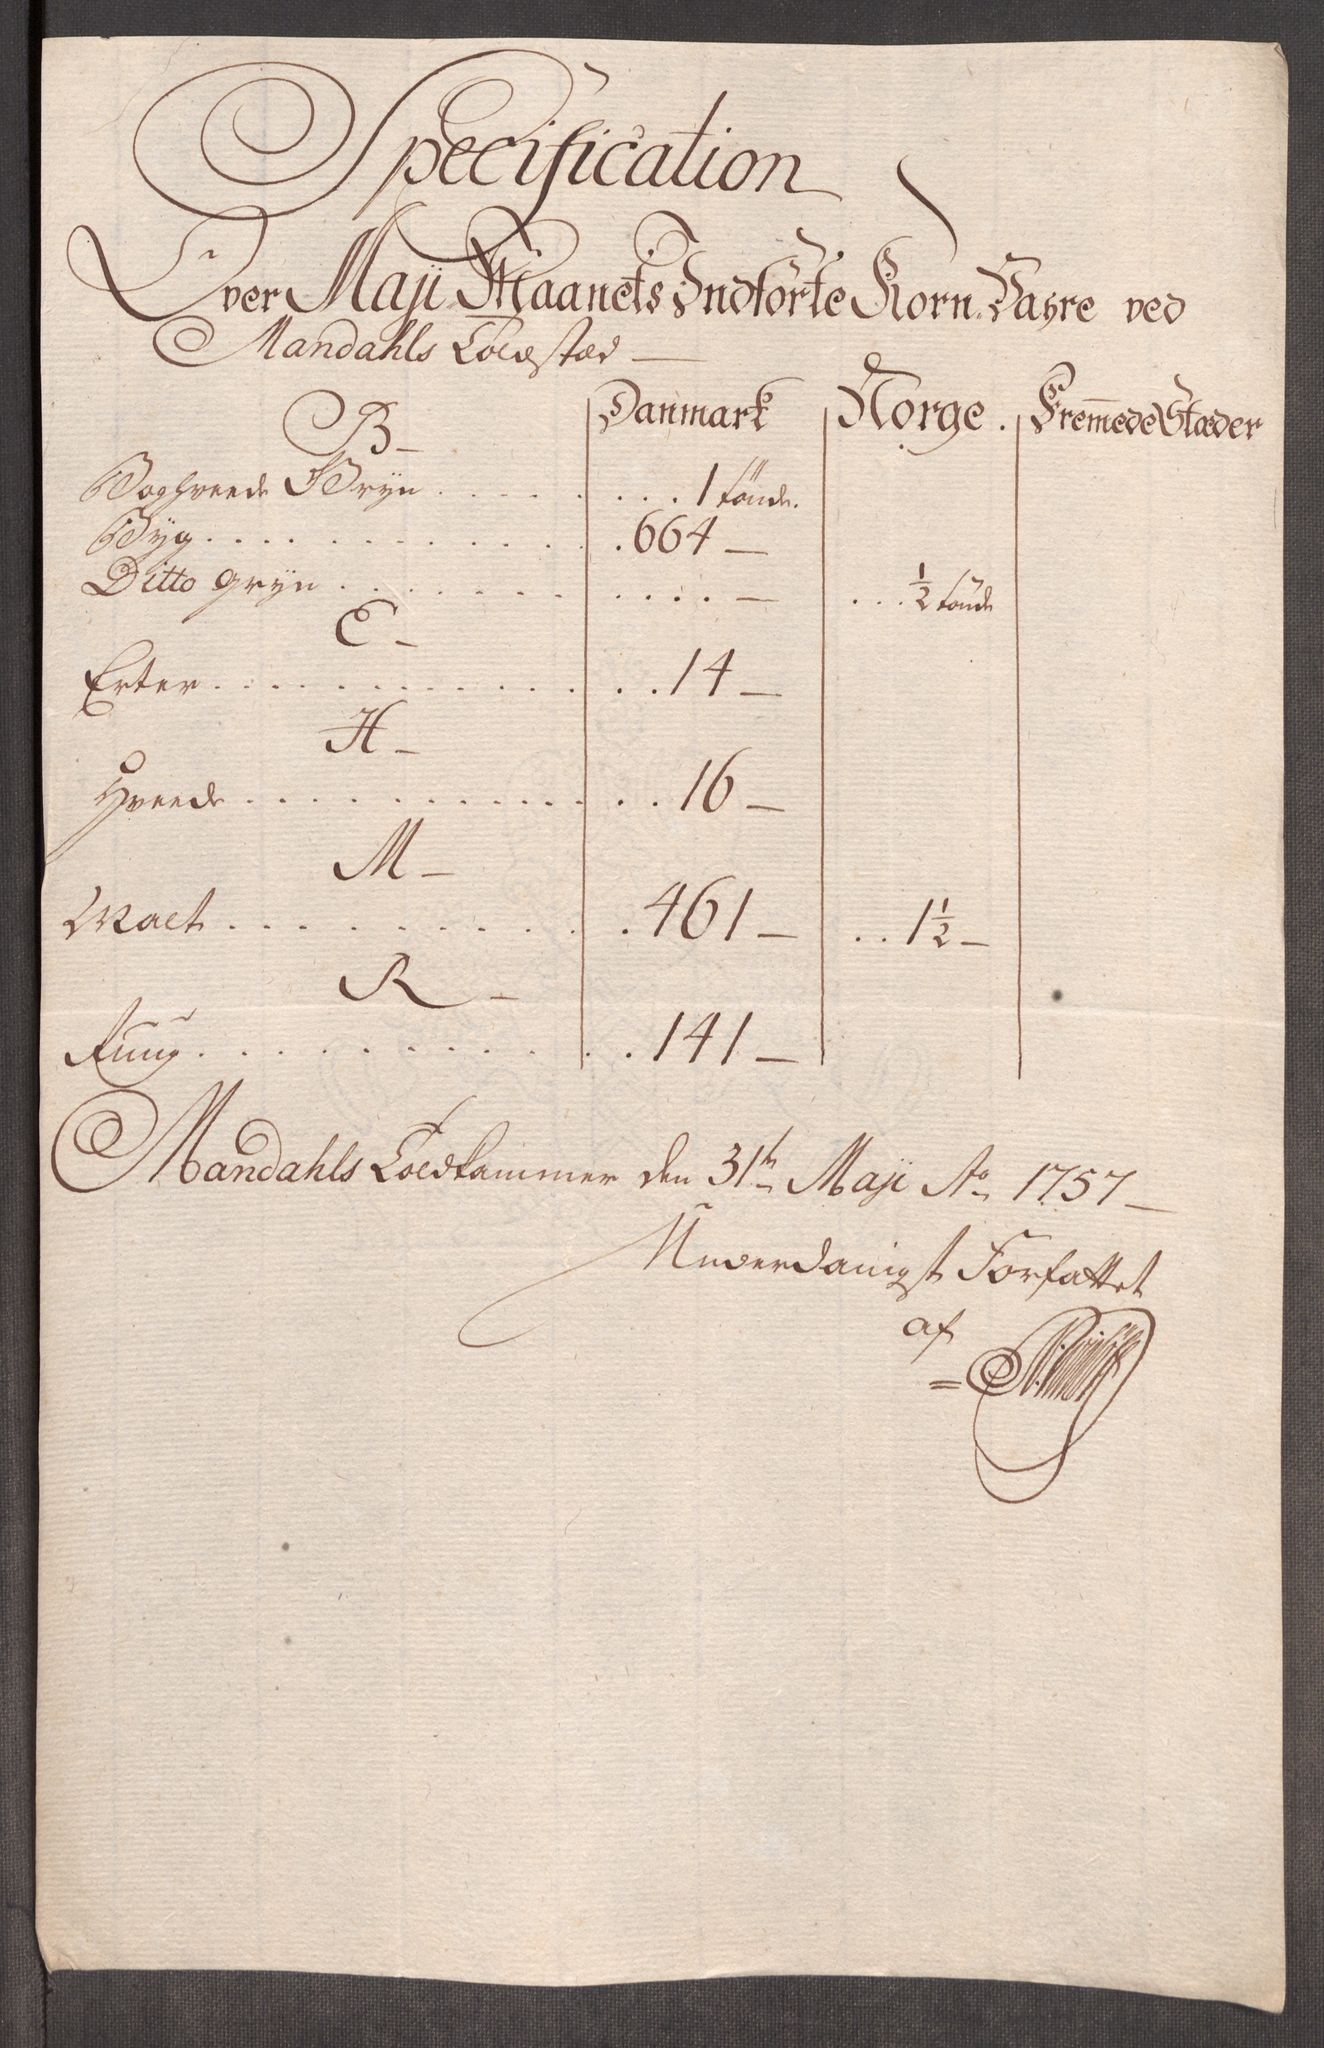 Specification
Over Maji Maanets Indförte Korn-Vahre ved
Mandahls Toldstæd —
Danmark Norge. Fremmede Stæder
B —
Boghveede Gryn . . . . . . . . 1 tönde.
Byg . . . . . . . . . . . . 664 —
Ditto gryn . . . . . . . . . . . — . . . ½ tönde
E —
Erter . . . . . . . . . . . . . 14 —
H —
Hveede . . . . . . . . . . . . . 16 —
M —
Malt . . . . . . . . . . . 461 — . . 1½ —
R —
Ruug . . . . . . . . . . . 141 —
Mandahls Toldkammer den 31th Maji Ao 1757 —
Underdanigst Forfattet
af